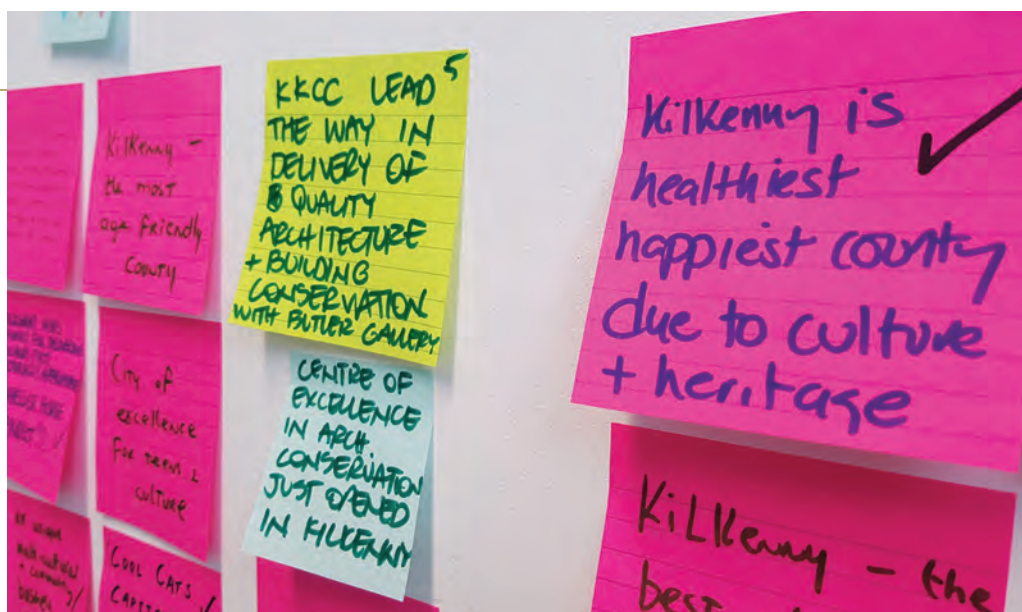 Kilkenny –
the most
age friendly
County
City of
excellence
For teens &
culture
COOL CATS
KKCC LEAD 5
THE WAY IN
DELIVERY OF
QUALITY
ARCHITECTURE
+ BUILDING
CONSERVATION
WITH BUTLER GALLERY
CENTRE OF
EXCELLENCE
IN ARCH
CONSERVATION
JUST OPENED
IN KILKENNY
Kilkenny is
healthiest
happiest county
due to culture
+ heritage
KiLKenny – the
best